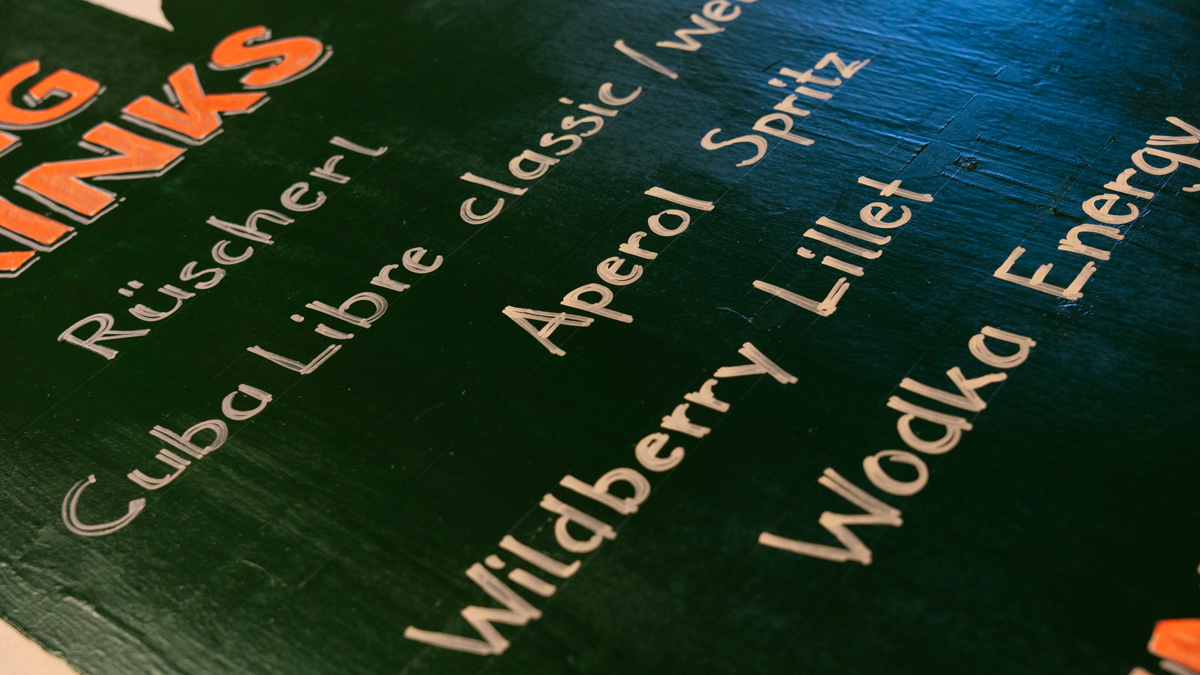 RÜscherl
Cuba Libre classic /
Aperol Spritz
Wildberry Lillet
Wodka Energy